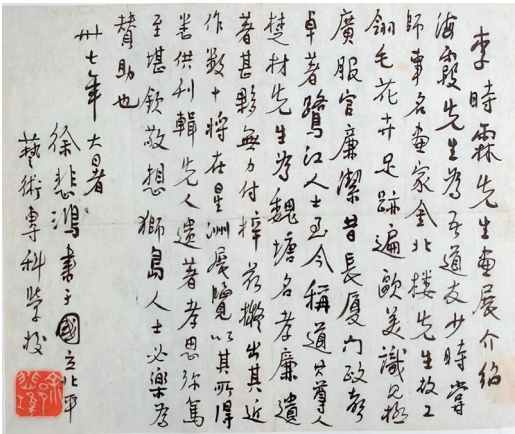 李時霖先生畫展介紹
海霞先生為吾道友少時嘗
師事名畫家金北樓先生故工
翎毛花卉足跡遍歐美識見極
廣服官廉潔昔長厦門政聲
卓著鷺江人士至今稱道其尊人
楚材先生為魏塘名孝廉遺
著甚夥無力付梓茲擬出其近
作數十將在星洲展覽以其所得
悉供刊輯先人遺著孝思彌篤
至堪欽敬想獅島人士必樂為
贊助也
卅七年大暑
徐悲鴻書于國立北平
藝術專科學校